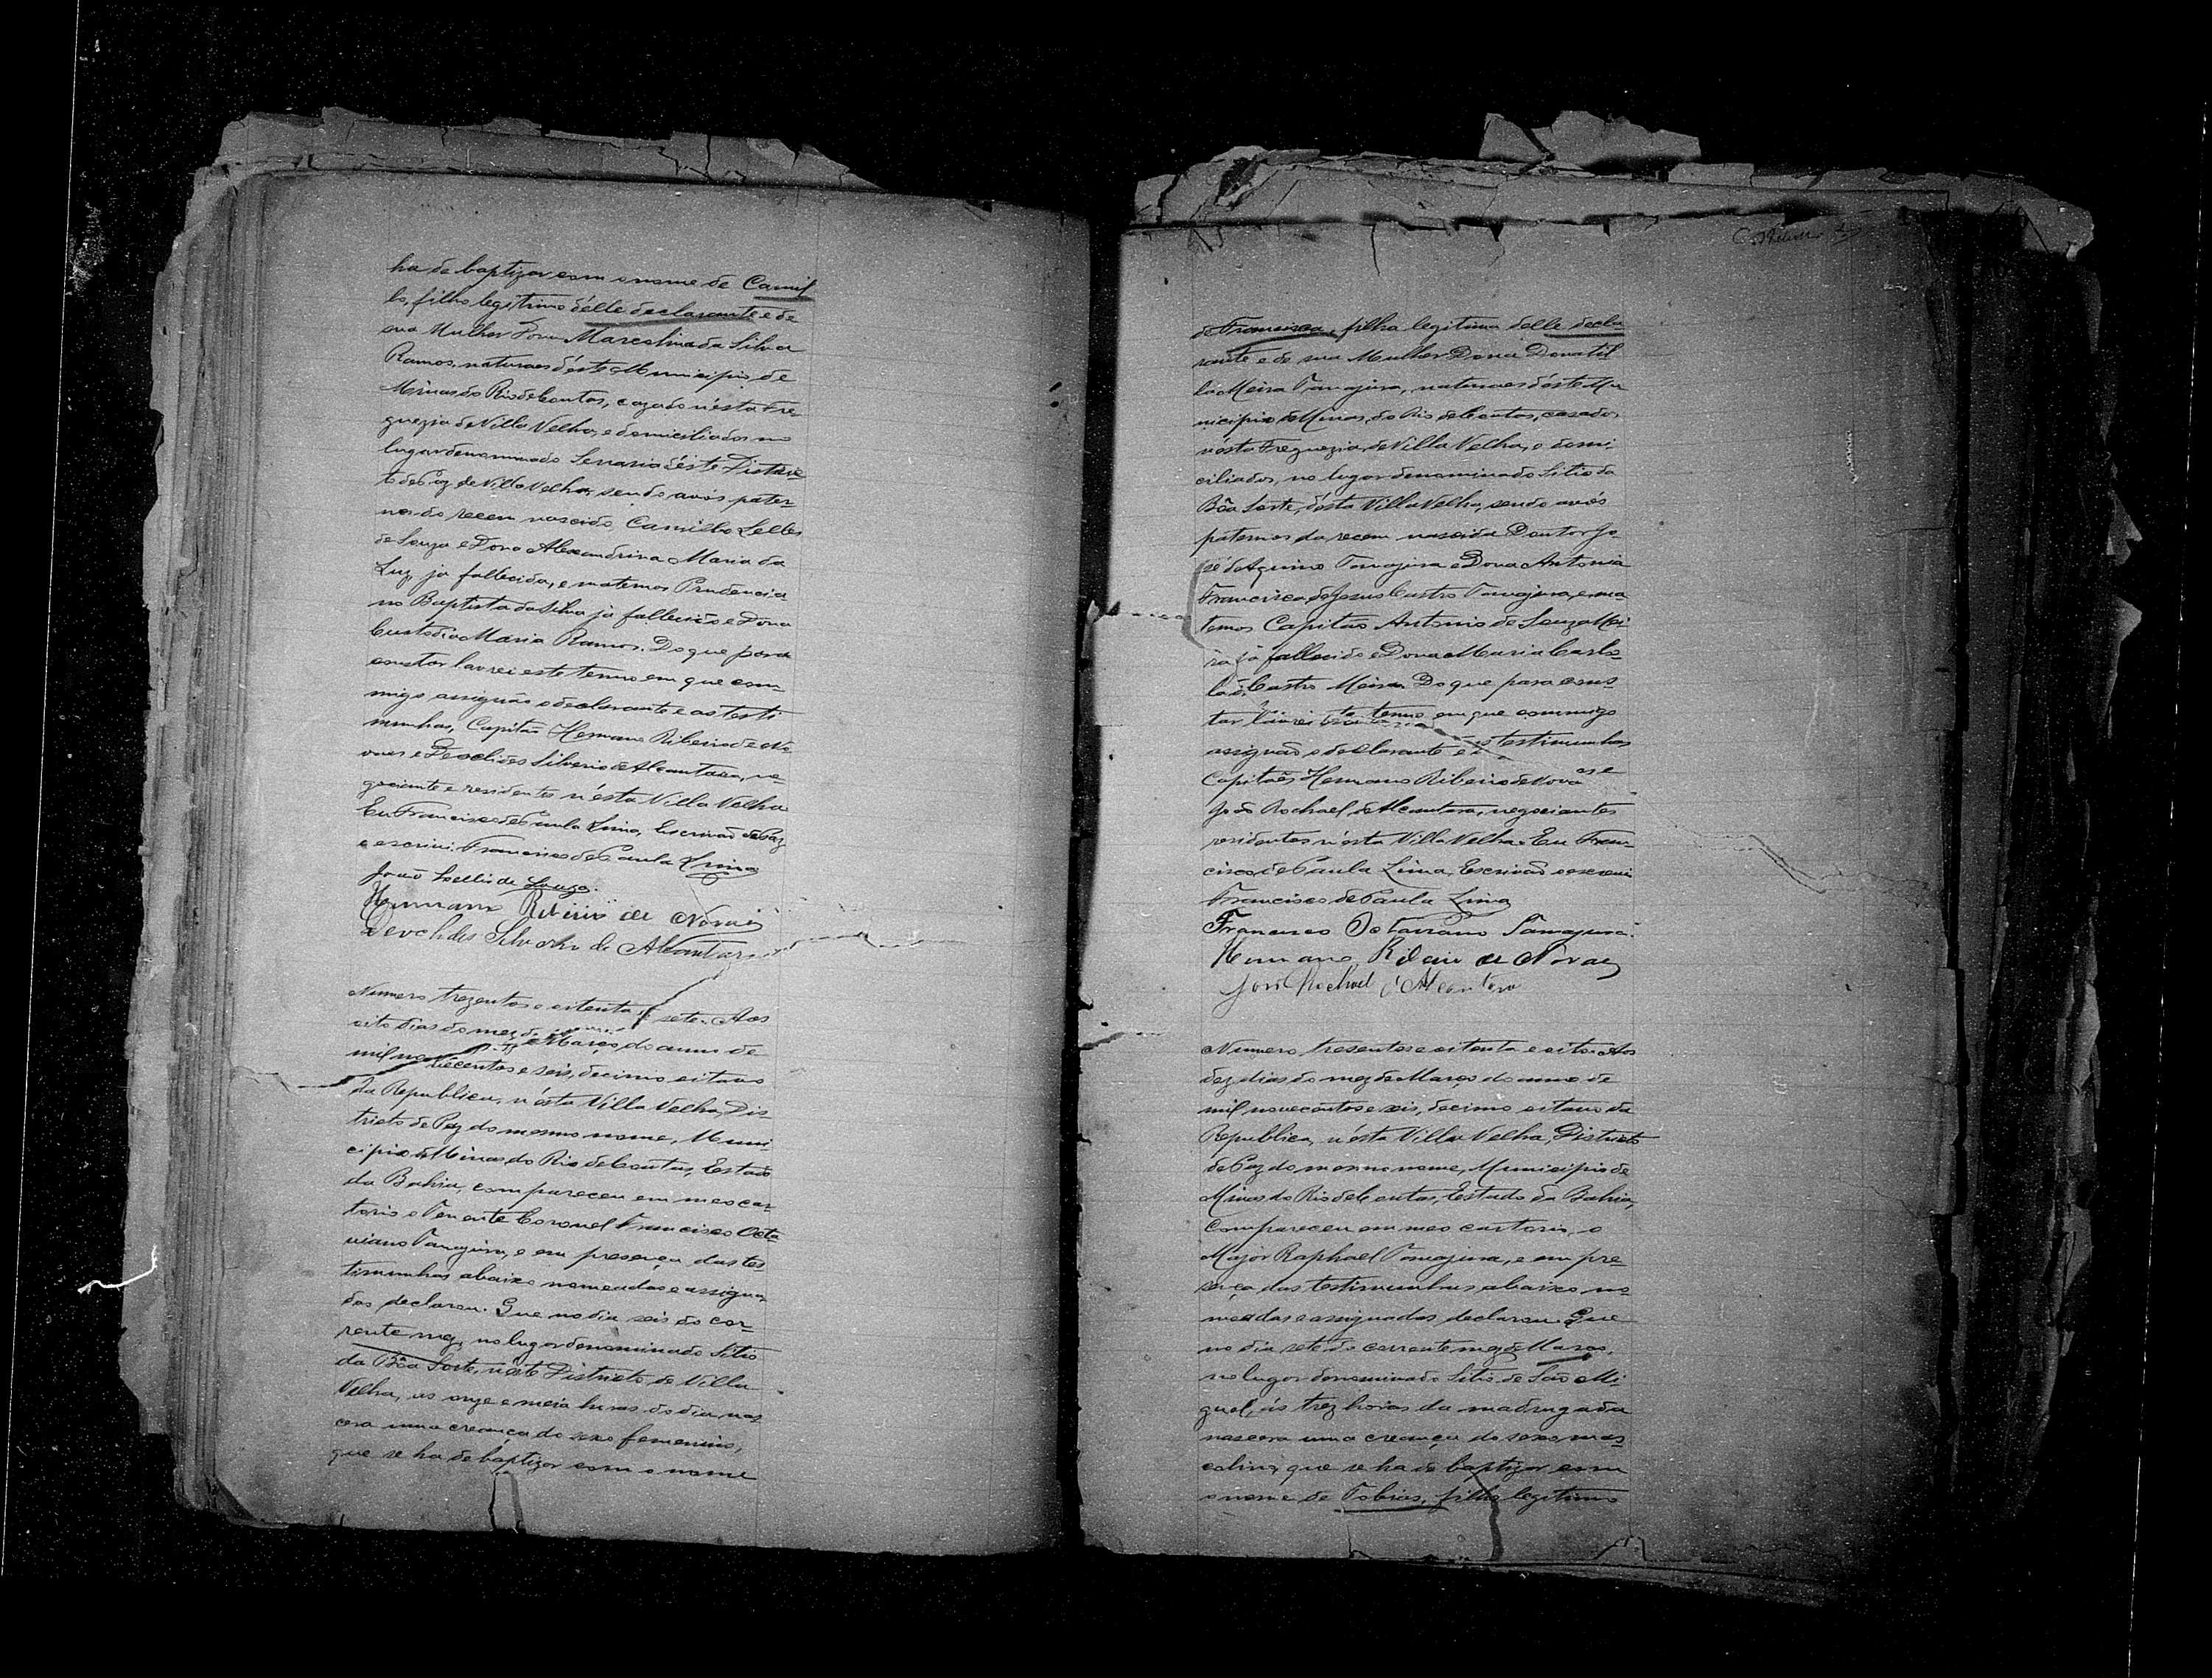 ha de baptizar com o nome de Camil
lo, filho legitimo d'elle declarante e de
sua Mulher Dona Marcolina da Silva
Ramos, naturaes d'este Municipio de
Minas do Rio de Contas, cazados n'esta Fre
guezia de Villa Velha, e domiciliados no
lugar denominado Serraria d'este Distric
to de Paz de Villa Velha, sendo avós pater-
nos do recem nascido Camillo Lelles
de Souza e Dona Alexandrina Maria da
Luz, já fallecida, e maternos Prudencia-
no Baptista da Silva já fallecido e Dona
Custodia Maria Ramos. Do que para
constar lavrei este termo em que com-
migo assignão o declarante e as testi
munhas, Capitão Hermano Ribeiro de No
vaes e Deoclides Silverio de Alcantara, ne-
gociante e residentes n'esta Villa Velha
Eu Francisco de Paula Lima, Escrivão de Paz
o escrevi. Francisco de Paula Lima
João Lellis de Souza.
Hermano Ribeiro de Novais
Deoclides Silverio de Alcantara
Numero trezentos e oitenta e sete. Aos
oito dias do mez de Março do anno de
mil novecentos e seis, decimo oitavo
da Republica, n'esta Villa Velha, Dis
tricto de Paz do mesmo nome, Muni
cipio de Minas do Rio de Contas, Estado
da Bahia, compareceu em meo car
torio o Tenente Coronel Francisco Octa
viano Tanajura, e em presença das tes
timunhas abaixo nomeadas e assigna
das declarou. Que no dia seis do cor-
rente mez, no lugar denominado Sitio
da Bôa Sorte, n'este Districto de Villa
Velha, as onze e meia horas do dia nas
cera uma creança do sexo femenino,
que se ha de baptizar com o nome
de Francisca, filha legitima delle decla
rante e de sua Mulher Dona Donatil
la Meira Tanajura, naturaes d'éste Mu
nicipio de Minas do Rio de Contas, casados
n'ésta Freguezia de Villa Velha, e domi
ciliados, no lugar denominado Sitio da
Bôa Sorte, d'ésta Villa Velha, sendo avós
paternos da recem nascida Doutor Jo
sé de Aquino Tanajura e Dona Antonia
Francisca de Jesus Castro Tanajura, e ma
ternos Capitão Antonio de Souza Mei
ra já fallecido e Dona Maria Carlo
ta Castro Meira. Do que para cons
tar lavrei este termo em que commigo
assignão o declarante e as testimunhas
Capitão Hermano Ribeiro de Novaes e
João Rochael de Alcantara, negociantes
residentes n'ésta Villa Velha. Eu Fran
cisco de Paula Lima, Escrivão o escrevi
Francisco de Paula Lima
Francisco Octaviano Tanajura.
Hermano Ribeiro de Novaes
João Rochael d'Alcantara
Numero tresentos e oitenta e oito. Aos
dez dias do mez de Março do anno de
mil novecentos e seis, decimo oitavo da
Republica, n'ésta Villa Velha, Districto
de Paz do mesmo nome, Municipio de
Minas do Rio de Contas, Estado da Bahia,
Compareceu em meo cartorio, o
Major Raphael Tanajura, e em pre
sença das testimunhas abaixo no
meadas e assignadas declarou. Que
no dia sete do corrente mez de Março,
no lugar denominado Sitio de São Mi
guel, ás trez horas da madrugada
nascera uma creança do sexo mas
culino, que se ha de baptizar com
o nome de Tobias, filho legitimo